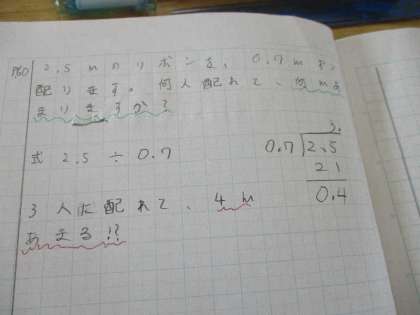 P60 2.5mのリボンを、0.7mずつ
配ります。何人配れて、何mあ
まりますか?
式 2.5÷0.7
3
0.7 2.5
21
0.4
3人に配れて、4m
あまる!?